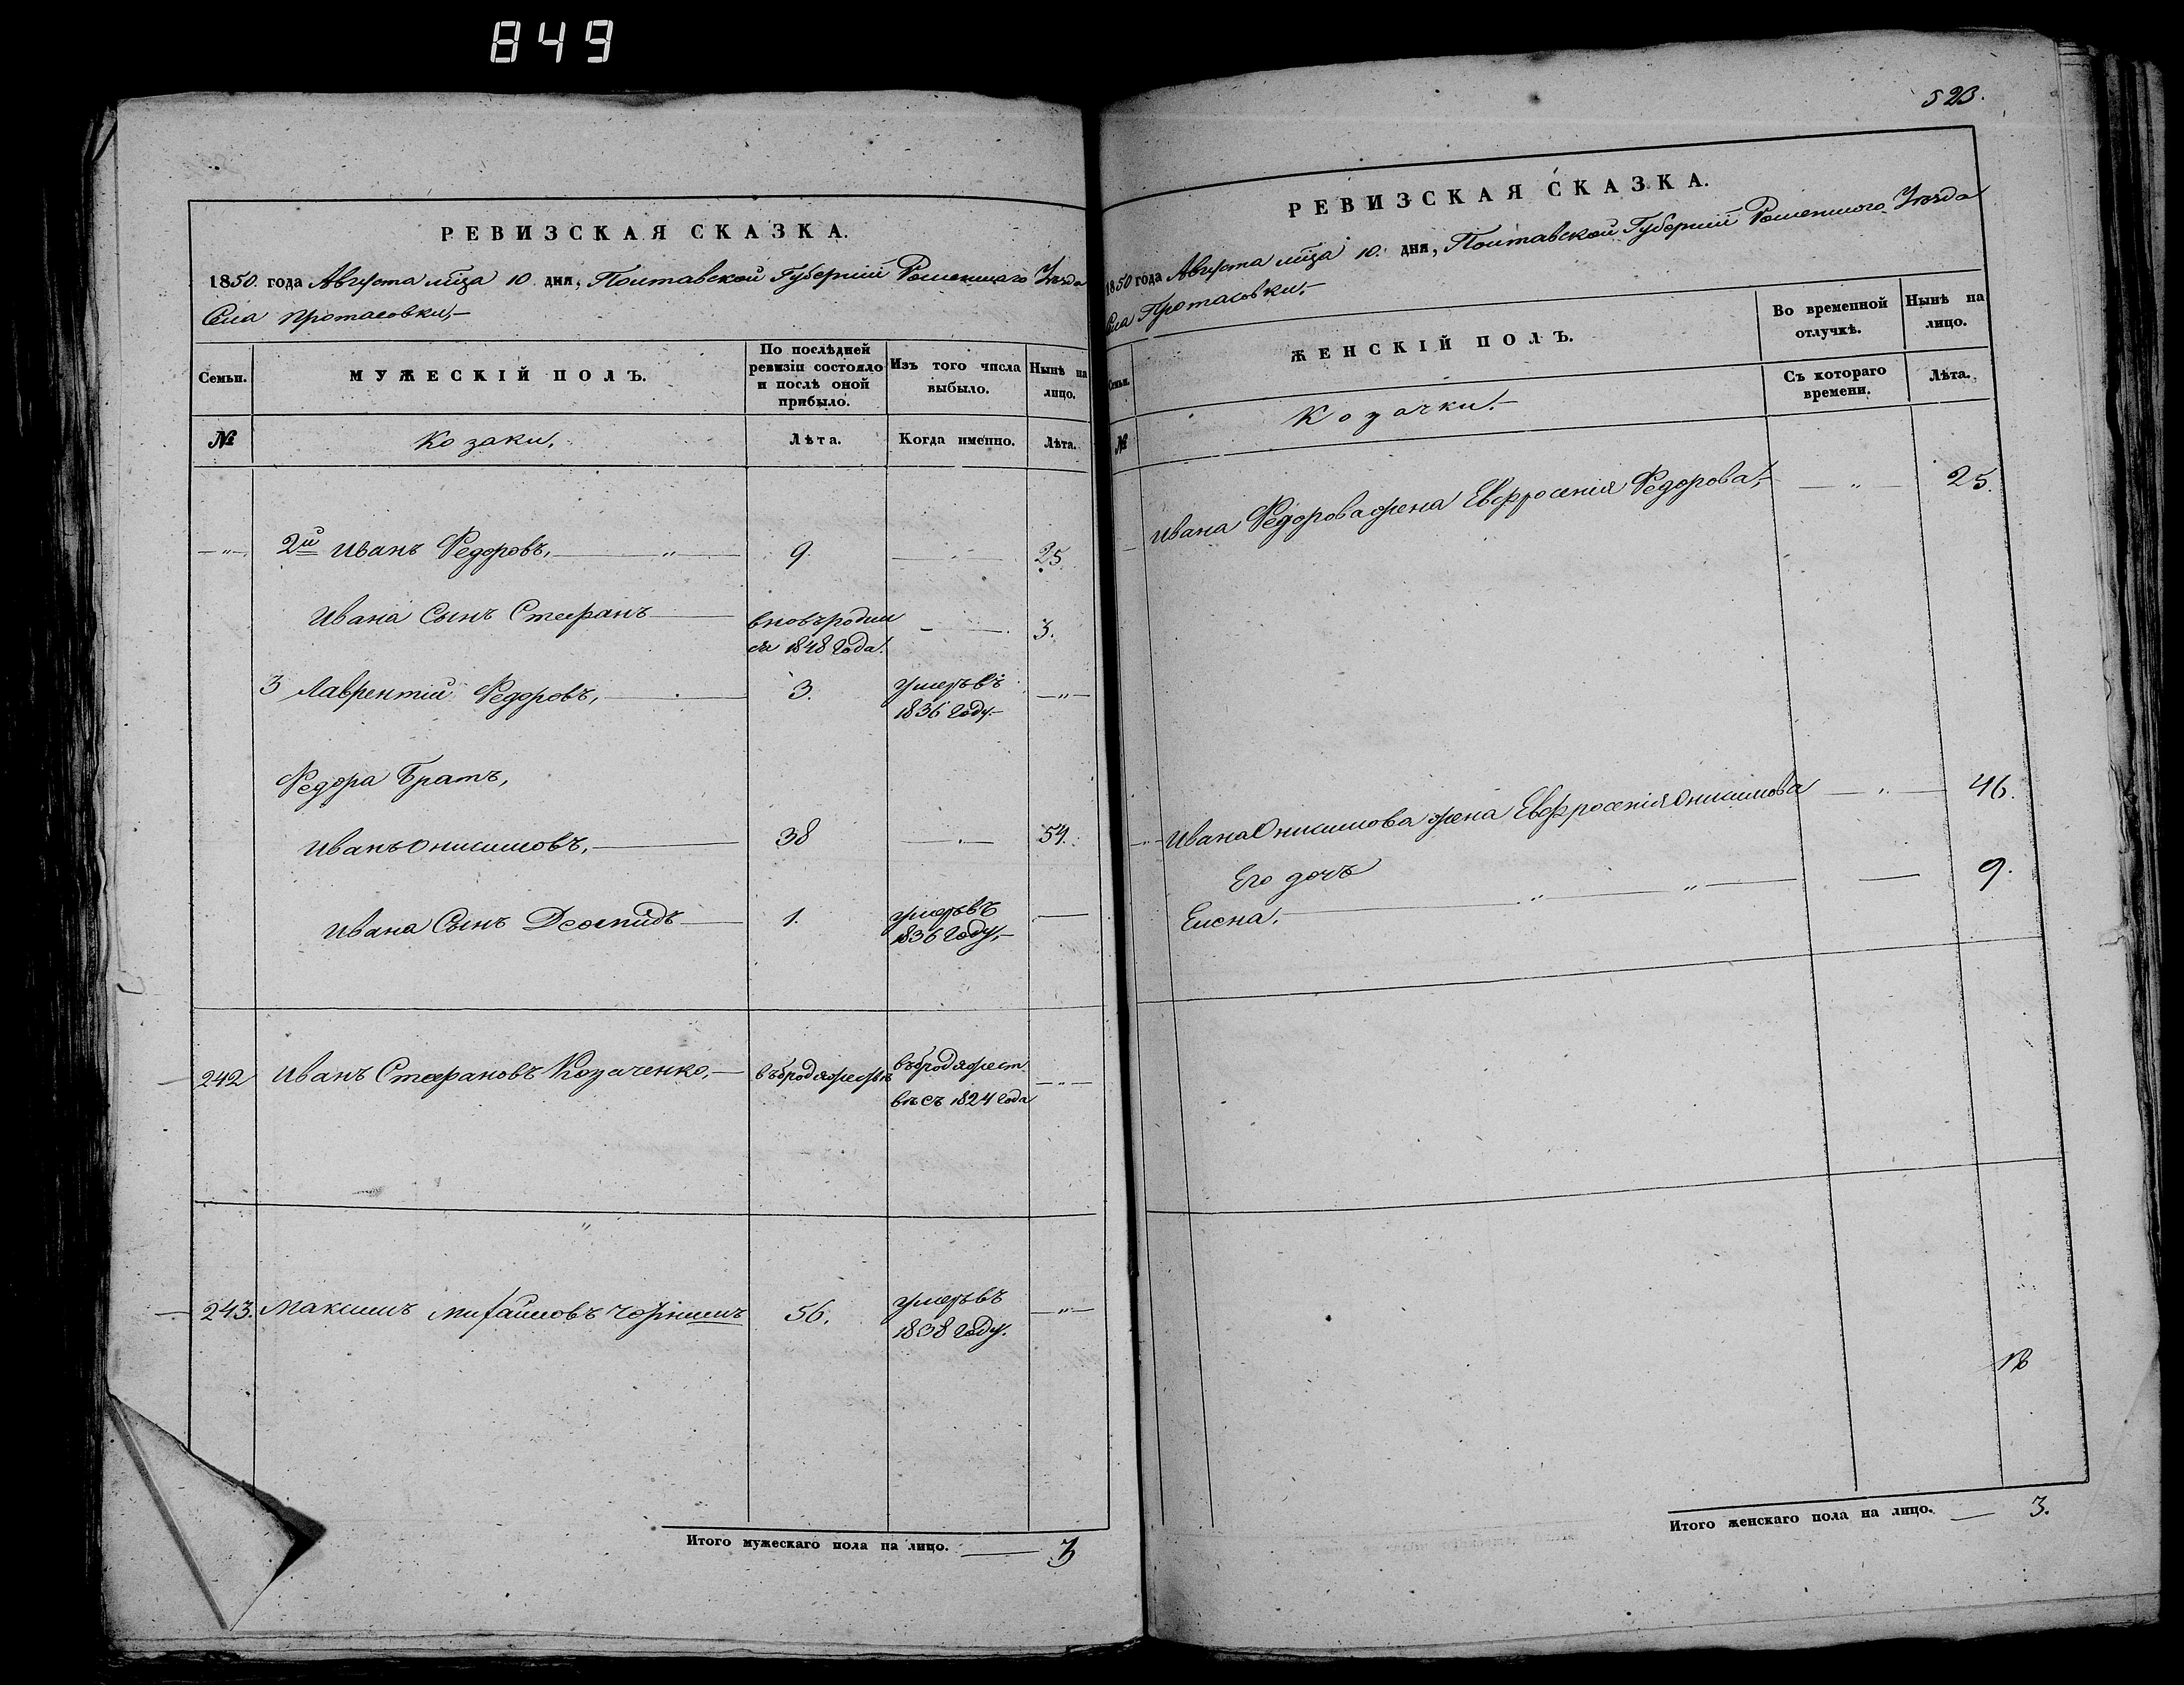 849
РЕВИЗСКАЯ СКАЗКА.
1850 года Августа мца 10 дня, Полтавской Губернии Роменскаго Уезда
Села Протасовки,
Семьи.
МУЖЕСКІЙ ПОЛЪ.
По послѣдней ревизіи состояло и послѣ оной прибыло.
Изъ того числа выбыло.
Нынѣ на лицо.
№
Козаки,
Лѣта.
Когда именно.
Лѣта.
2й Иванъ Федоровъ, 9. 25.
Ивана Сынъ Стефанъ вновь родил 3.
ся 1848 года.
3 Лаврентий Федоровъ, 3. умеръ въ
1836 году.
Федора Братъ,
Иванъ Онисимовъ, 38 54.
Ивана Сынъ Леонидъ 1. умеръ въ
1836 году,
242 Иванъ Стефановъ Козаченко, въ бродяжествѣ въ бродяжест
вѣ съ 1824 года
243. Максимъ Михайловъ 56. умеръ въ
1838 году.
Итого мужескаго пола на лицо. 3
523.
РЕВИЗСКАЯ СКАЗКА.
1850 года Августа мца 10. дня, Полтавской Губернии Роменского Уезда
Села Протасовки.
Семьи.
ЖЕНСКІЙ ПОЛЪ.
Во временной отлучкѣ.
Нынѣ на лицо.
Съ котораго времени.
Лѣта.
№
Козачки.
Ивана Федорова жена Евфросения Федорова, 25.
Ивана Онисимова жена Евфросения Онисимова 46.
Его дочь
Елена. 9.
Итого женскаго пола на лицо. 3.